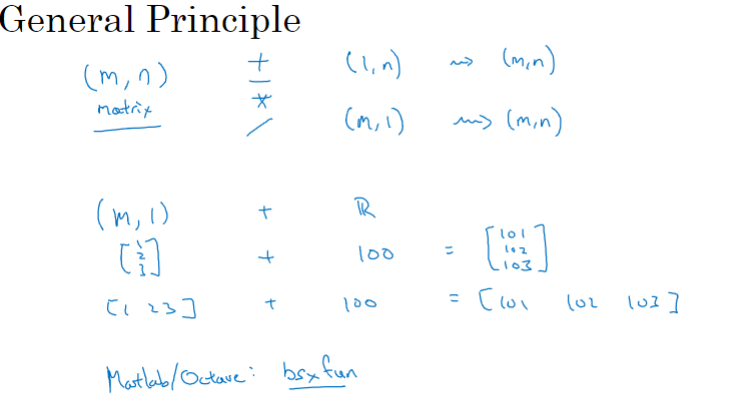 General Principle
(m, n) + (1, n) ⇝ (m, n)
matrix - 
* (m, 1) ⇝ (m, n)
/
(m, 1) + ℝ
[1 2 3] + 100 = [101 102 103]
[1 2 3] + 100 = [101 102 103]
Matlab/Octave: bsxfun